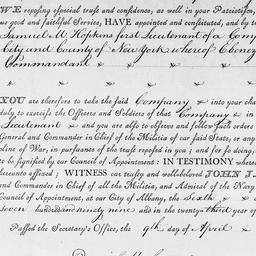 WE reposing special trust and confidence, as well in your Patriotism,
ous and faithful Service, HAVE appointed and constituted, and by t
Samuel M. Hopkins first Lieutenant of a Comp
City and County of New York whereof Ebenez
Commandant
YOU are therefore to take the said Company into your cha
duly to exercise the Officers and Soldiers of that Company in
Lieutenant and you are also to observe and follow such orders
General and Commander in Chief of the Militia of our said State, or any
pline of War, in pursuance of the trust reposed in you; and for so doing,
to be signified by our Council of Appointment: IN TESTIMONY where
hereunto affixed: WITNESS our trusty and well-beloved JOHN J
and Commander in Chief of all the Militia, and Admiral of the Navy
Council of Appointment, at our City of Albany, the Sixth
seven hundred and ninety nine and in the twenty third year of
Passed the Secretary's Office, the 9th day of April